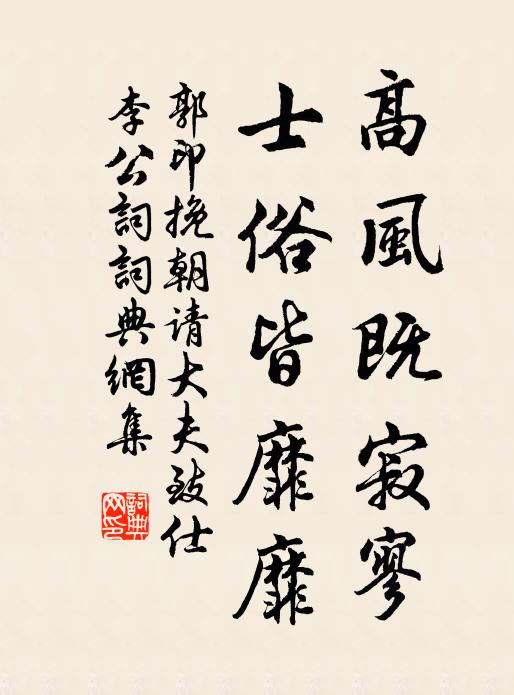 高風既寂寥
士俗皆靡靡
郭印挽朝请大夫致仕
李公詞詞典網集
詞典
网印